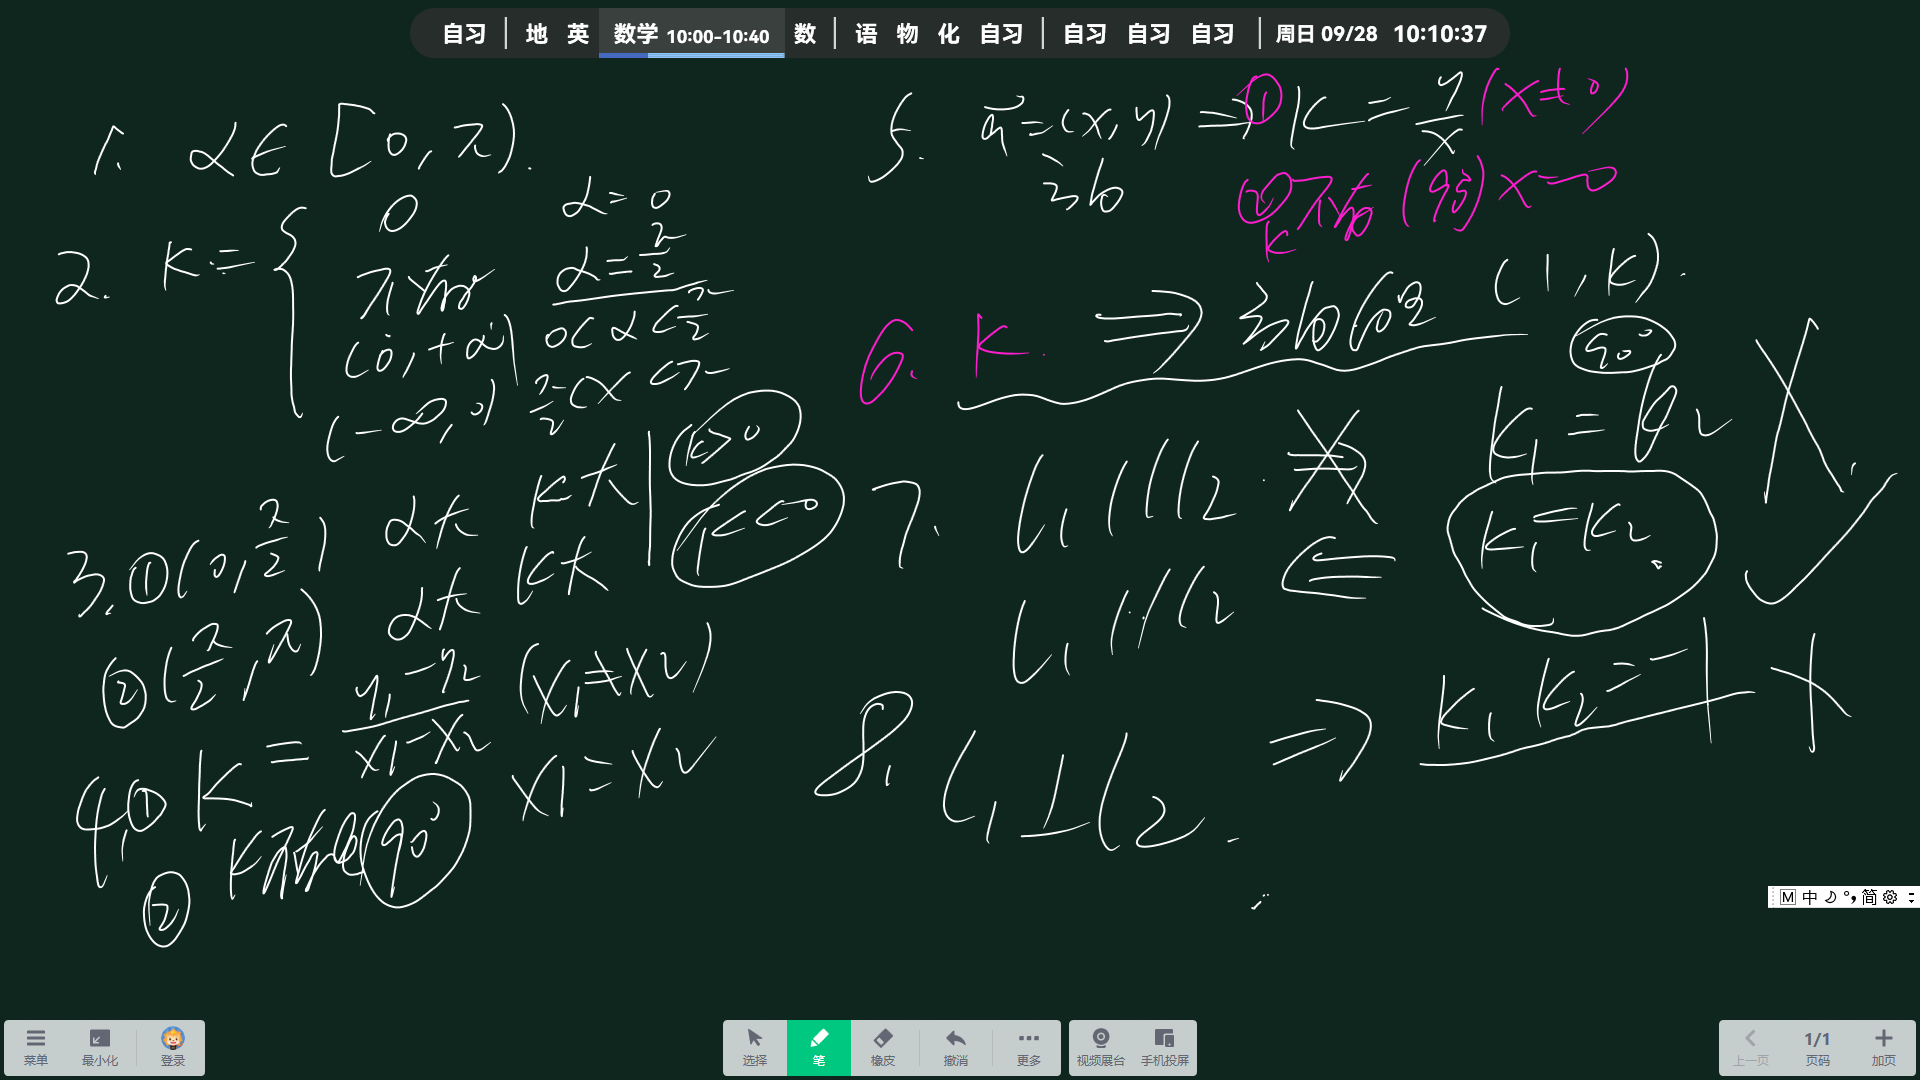 自习 | 地 英 数学 10:00-10:40 数 | 语 物 化 自习 | 自习 自习 自习 | 周日 09/28 10:10:37
1. α∈[0,π).
2. K = {
0 α=0
不存在 α=π/2
(0,+∞) 0<α<π/2
(-∞,0) π/2<α<π
3. ①(0,π/2) α大 K大 | K>0
②(π/2,π) α大 K大 K<0
4. ① K = (y₁-y₂)/(x1-x₂) (x₁≠x₂)
② K不存在(90° x1=x₂
5. a⃗=(x,y) ⇒ ① K=y/x (x≠0)
② K不存在 (90°) x=0
6. K. ⇒ (1,K).
90°
7. l₁//l₂ ⇒ K₁=K₂ X
l₁//l₂ ⇐ K₁=K₂. ✓
8. l₁⊥l₂. ⇒ K₁K₂=-1 X
M 中 简
菜单 最小化 登录 选择 笔 橡皮 撤消 更多 视频展台 手机投屏 上一页 1/1 页码 加页